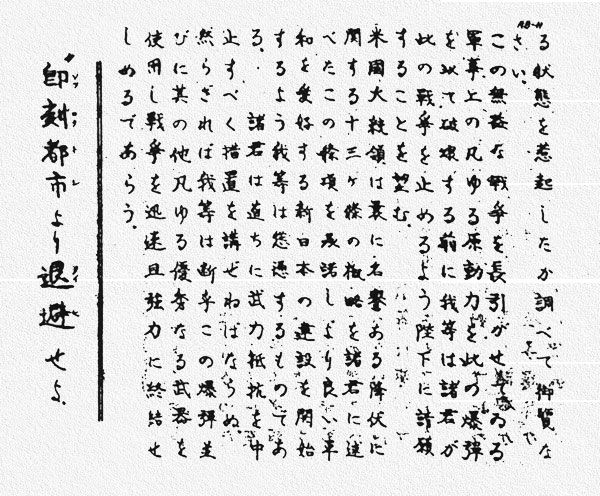 AB-11
る状態を惹起したか調べて御覧な
さい。
この無益な戦争を長引かせてゐる
軍事上の凡ゆる原動力を此の爆弾
を以て破壊する前に我等は諸君が
此の戦争を止めるよう陛下に請願
することを望む。
米國大統領は曩に名譽ある降伏に
関する十三ヶ條の概略を諸君に述
べたこの條項を承諾しより良い平
和を愛好する新日本の建設を開始
するよう我等は慫慂するものであ
る。諸君は直ちに武力抵抗を中
止すべく措置を講ぜねばならぬ
然らざれば我等は断乎この爆弾並
びに其の他凡ゆる優秀なる武器を
使用し戦争を迅速且強力に終結せ
しめるであらう。
即刻都市より退避せよ.